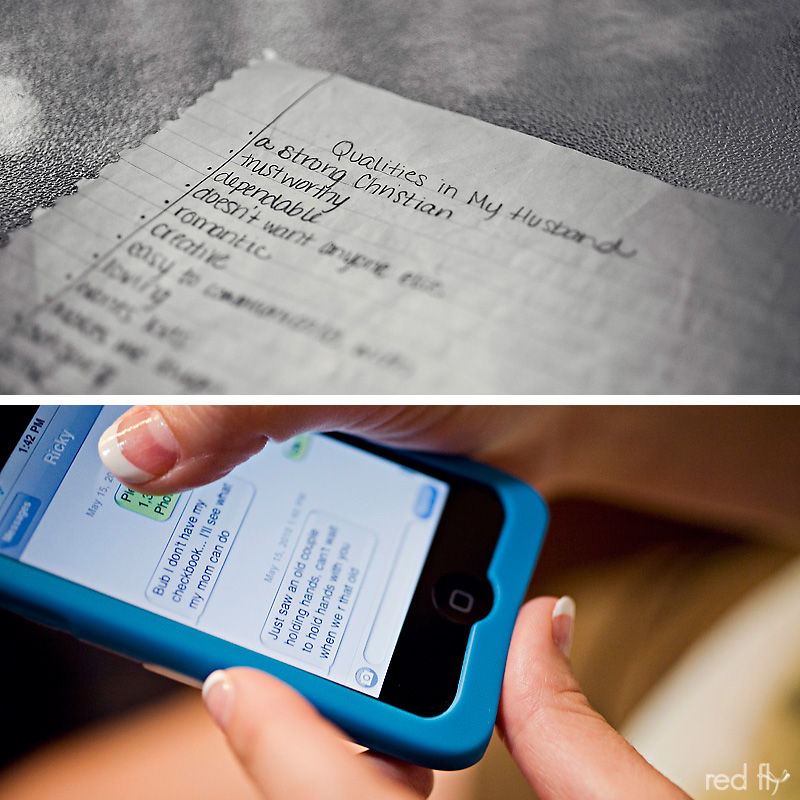 Qualities in My Husband
• a strong Christian
• trustworthy
• dependable
• doesn't want anyone else
• romantic
• creative
• easy to communicate with
• loving
1:42 PM
Messages
Ricky
May 15, 20
Ple
1,3
Pho
Bub I don't have my
checkbook... I'll see what
my mom can do
May 15, 2010 1:40 PM
Just saw an old couple
holding hands, can't wait
to hold hands with you
when we r that old
red fly